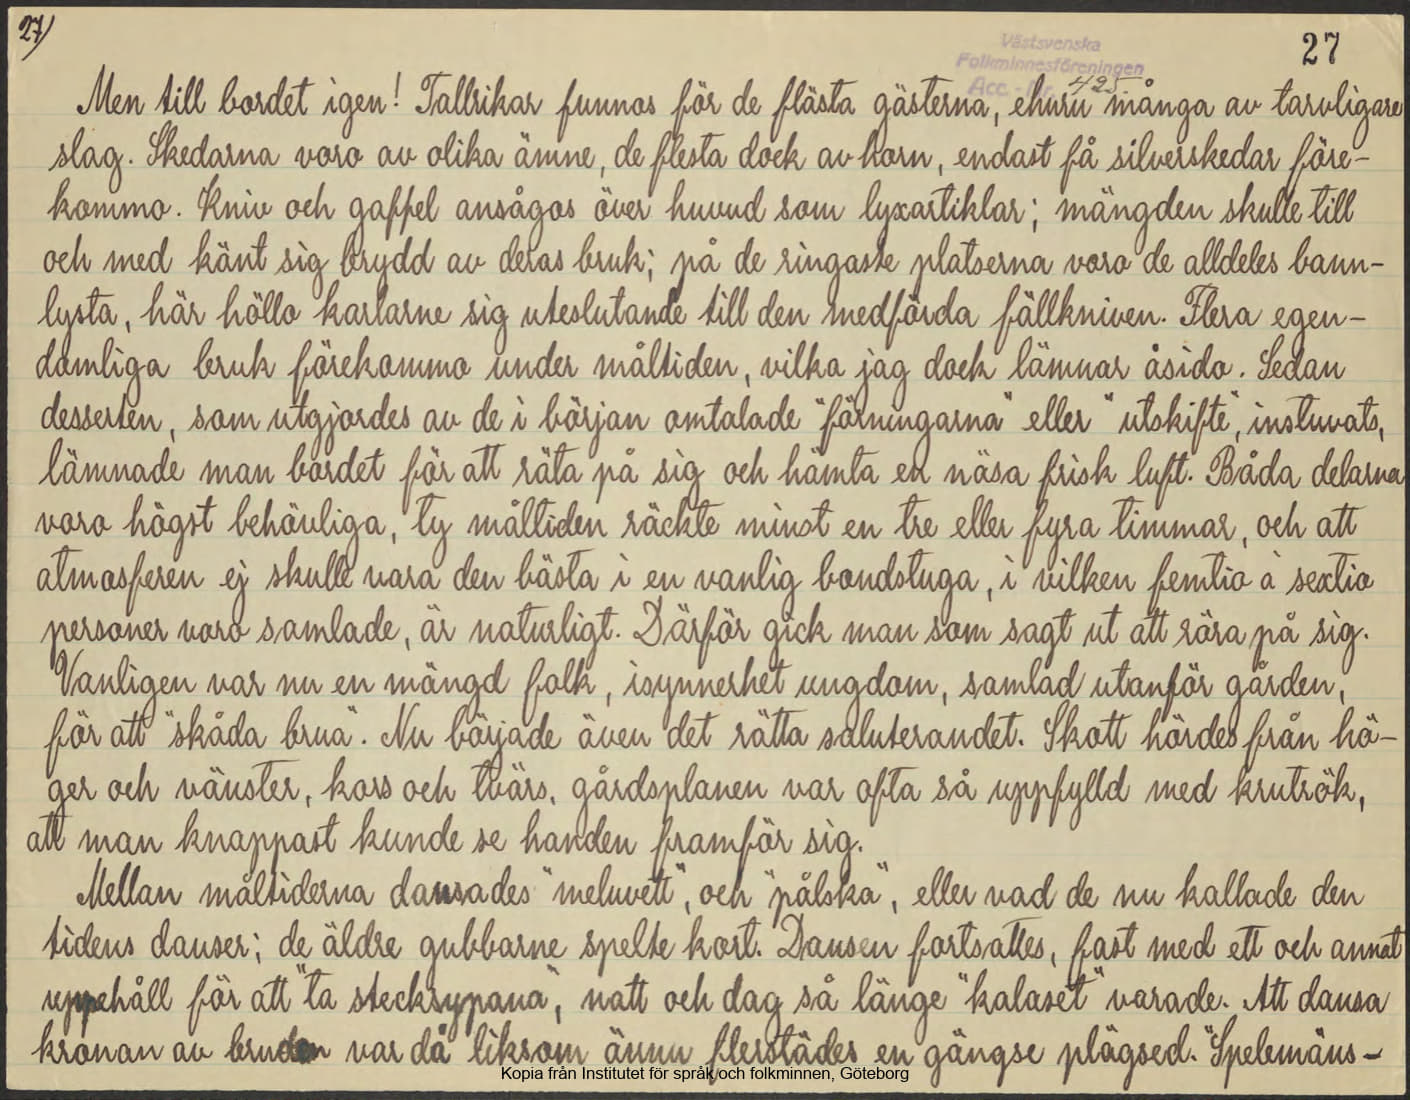 27)
27
Västsvenska
Folkminnesföreningen
Acc.-Nr. 425
Men till bordet igen! Tallrikar funnos för de flästa gästerna, ehuru många av tarvligare
slag. Skedarna voro av olika ämne, de flesta dock av horn, endast få silverskedar före-
kommo. Kniv och gaffel ansågos över huvud som lyxartiklar; mängden skulle till
och med känt sig brydd av deras bruk; på de ringaste platserna voro de alldeles bann-
lysta, här höllo karlarne sig uteslutande till den medförda fällkniven. Flera egen-
domliga bruk förekommo under måltiden, vilka jag dock lämnar åsido. Sedan
desserten, som utgjordes av de i början omtalade "förningarna" eller "utskifte", instuvats,
lämnade man bordet för att räta på sig och hämta en näsa frisk luft. Båda delarna
voro högst behövliga, ty måltiden räckte minst en tre eller fyra timmar, och att
atmosferen ej skulle vara den bästa i en vanlig bondstuga, i vilken femtio à sextio
personer voro samlade, är naturligt. Därför gick man som sagt ut att röra på sig.
Vanligen var nu en mängd folk, isynnerhet ungdom, samlad utanför gården,
för att "skåda brua". Nu började även det rätta saluterandet. Skott hördes från hö-
ger och vänster, kors och tvärs, gårdsplanen var ofta så uppfylld med krutrök,
att man knappast kunde se handen framför sig.
Mellan måltiderna dansades "meluvett", och "pålska", eller vad de nu kallade den
tidens danser; de äldre gubbarne spelte kort. Dansen fortsattes, fast med ett och annat
uppehåll för att "ta stecksypana", natt och dag så länge "kalaset" varade. Att dansa
kronan av bruden var då liksom ännu flerstädes en gängse plägsed. "Spelemäns-
Kopia från Institutet för språk och folkminnen, Göteborg